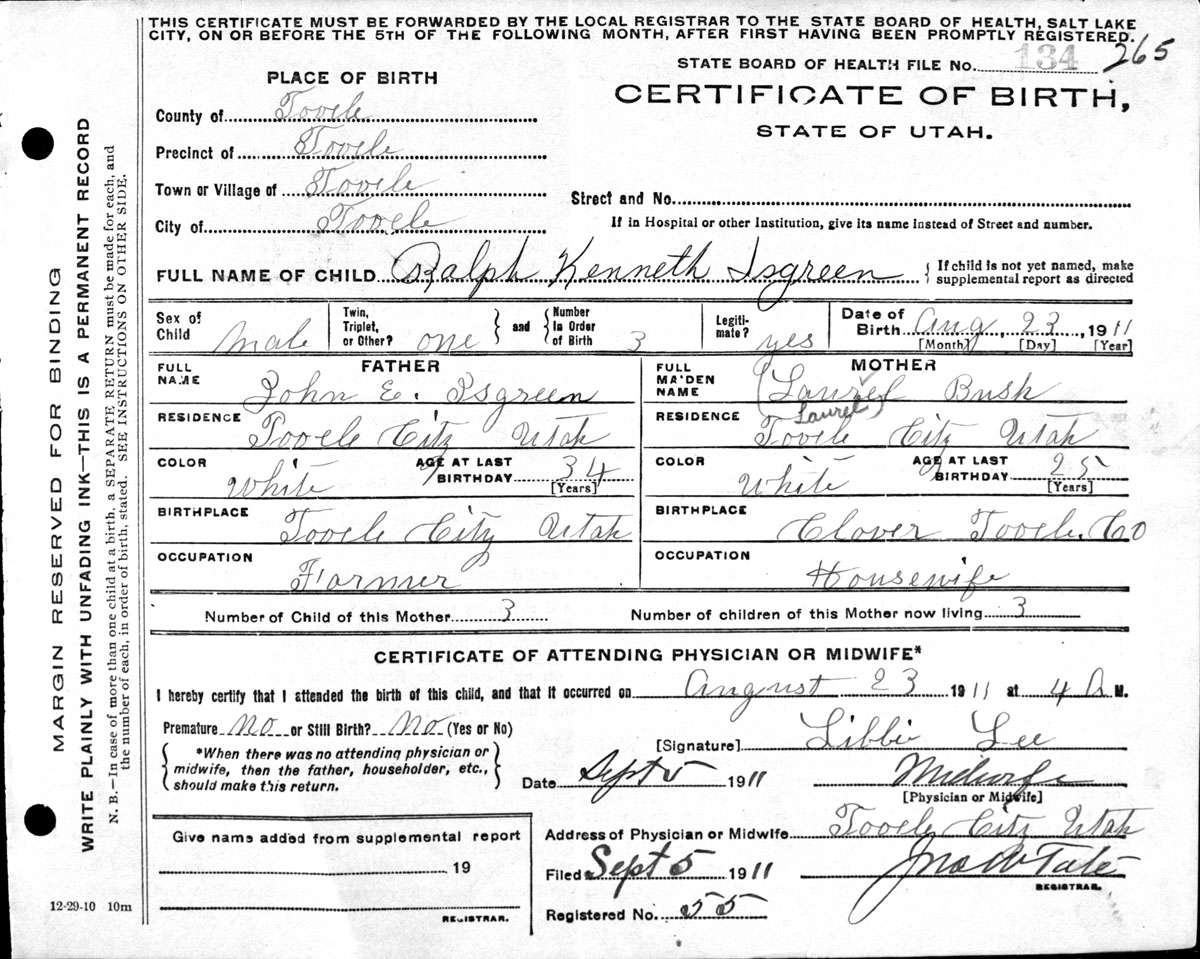 THIS CERTIFICATE MUST BE FORWARDED BY THE LOCAL REGISTRAR TO THE STATE BOARD OF HEALTH, SALT LAKE
CITY, ON OR BEFORE THE 5TH OF THE FOLLOWING MONTH, AFTER FIRST HAVING BEEN PROMPTLY REGISTERED.
STATE BOARD OF HEALTH FILE No. 134 265
PLACE OF BIRTH
CERTIFICATE OF BIRTH,
STATE OF UTAH.
County of Tooele
Precinct of Tooele
Town or Village of Tooele
Street and No.
City of Tooele
If in Hospital or other Institution, give its name instead of Street and number.
FULL NAME OF CHILD Ralph Kenneth Isgreen { If child is not yet named, make
supplemental report as directed
Sex of Child Male
Twin, Triplet, or Other? one } and { Number In Order of Birth 3
Legiti-mate? yes
Date of Birth Aug 23, 1911
[Month] [Day] [Year]
FATHER
MOTHER
FULL NAME John E. Isgreen
FULL MAIDEN NAME (Laurel Bush
Laurel)
RESIDENCE Tooele City Utah
RESIDENCE Tooele City Utah
COLOR White AGE AT LAST BIRTHDAY 34 [Years]
COLOR White AGE AT LAST BIRTHDAY 25 [Years]
BIRTHPLACE Tooele City Utah
BIRTHPLACE Clover Tooele. Co
OCCUPATION Farmer
OCCUPATION Housewife
Number of Child of this Mother 3 Number of children of this Mother now living 3
CERTIFICATE OF ATTENDING PHYSICIAN OR MIDWIFE*
I hereby certify that I attended the birth of this child, and that it occurred on August 23 1911 at 4 A M.
Premature No or Still Birth? No (Yes or No)
[Signature] Libbie Lee
{ *When there was no attending physician or
midwife, then the father, householder, etc.,
should make this return. }
Date Sept 5 1911 Midwife
[Physician or Midwife]
Give name added from supplemental report
19
REGISTRAR.
Address of Physician or Midwife Tooele City Utah
Filed Sept 5 1911 Jno W Tate
REGISTRAR.
Registered No. 55
12-29-10 10m
MARGIN RESERVED FOR BINDING
WRITE PLAINLY WITH UNFADING INK—THIS IS A PERMANENT RECORD
N. B.—In case of more than one child at a birth, a SEPARATE RETURN must be made for each, and
the number of each, in order of birth, stated. SEE INSTRUCTIONS ON OTHER SIDE.